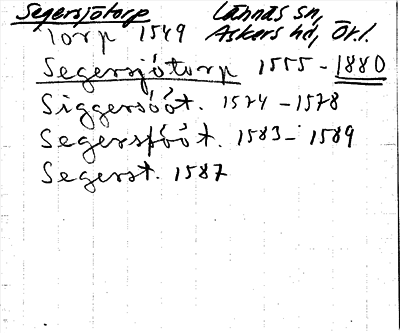 Segersjötorp Lännäs sn,
Torp 1549 Askers hd, Ör.l.
Segersjötorp 1555 - 1880
Siggersööt. 1574 - 1578
Segersööt. 1583 - 1589
Segerst. 1587